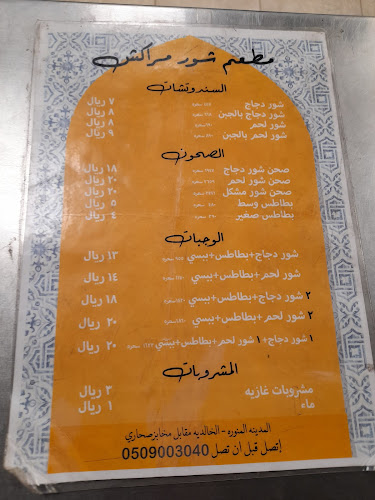 مطعم شور مراكش
السندوتشات
شور دجاج ٧ ريال
شور دجاج بالجبن ٨ ريال
شور لحم ٨ ريال
شور لحم بالجبن ٩ ريال
الصحون
صحن شور دجاج ١٨ ريال
صحن شور لحم ٢٠ ريال
صحن شور مشكل ٢٠ ريال
بطاطس وسط ٥ ريال
بطاطس صغير ٤ ريال
الوجبات
شور دجاج+بطاطس+ببسي ١٣ ريال
شور لحم+بطاطس+ببسي ١٤ ريال
٢ شور دجاج+بطاطس+ببسي ١٨ ريال
٢ شور لحم+بطاطس+ببسي ٢٠ ريال
١ شور دجاج+١ شور لحم+بطاطس+ببسي ٢٠ ريال
المشروبات
مشروبات غازيه ٣ ريال
ماء ١ ريال
المدينه المنوره - الخالديه مقابل مخابز صحاري
إتصل قبل ان تصل 0509003040